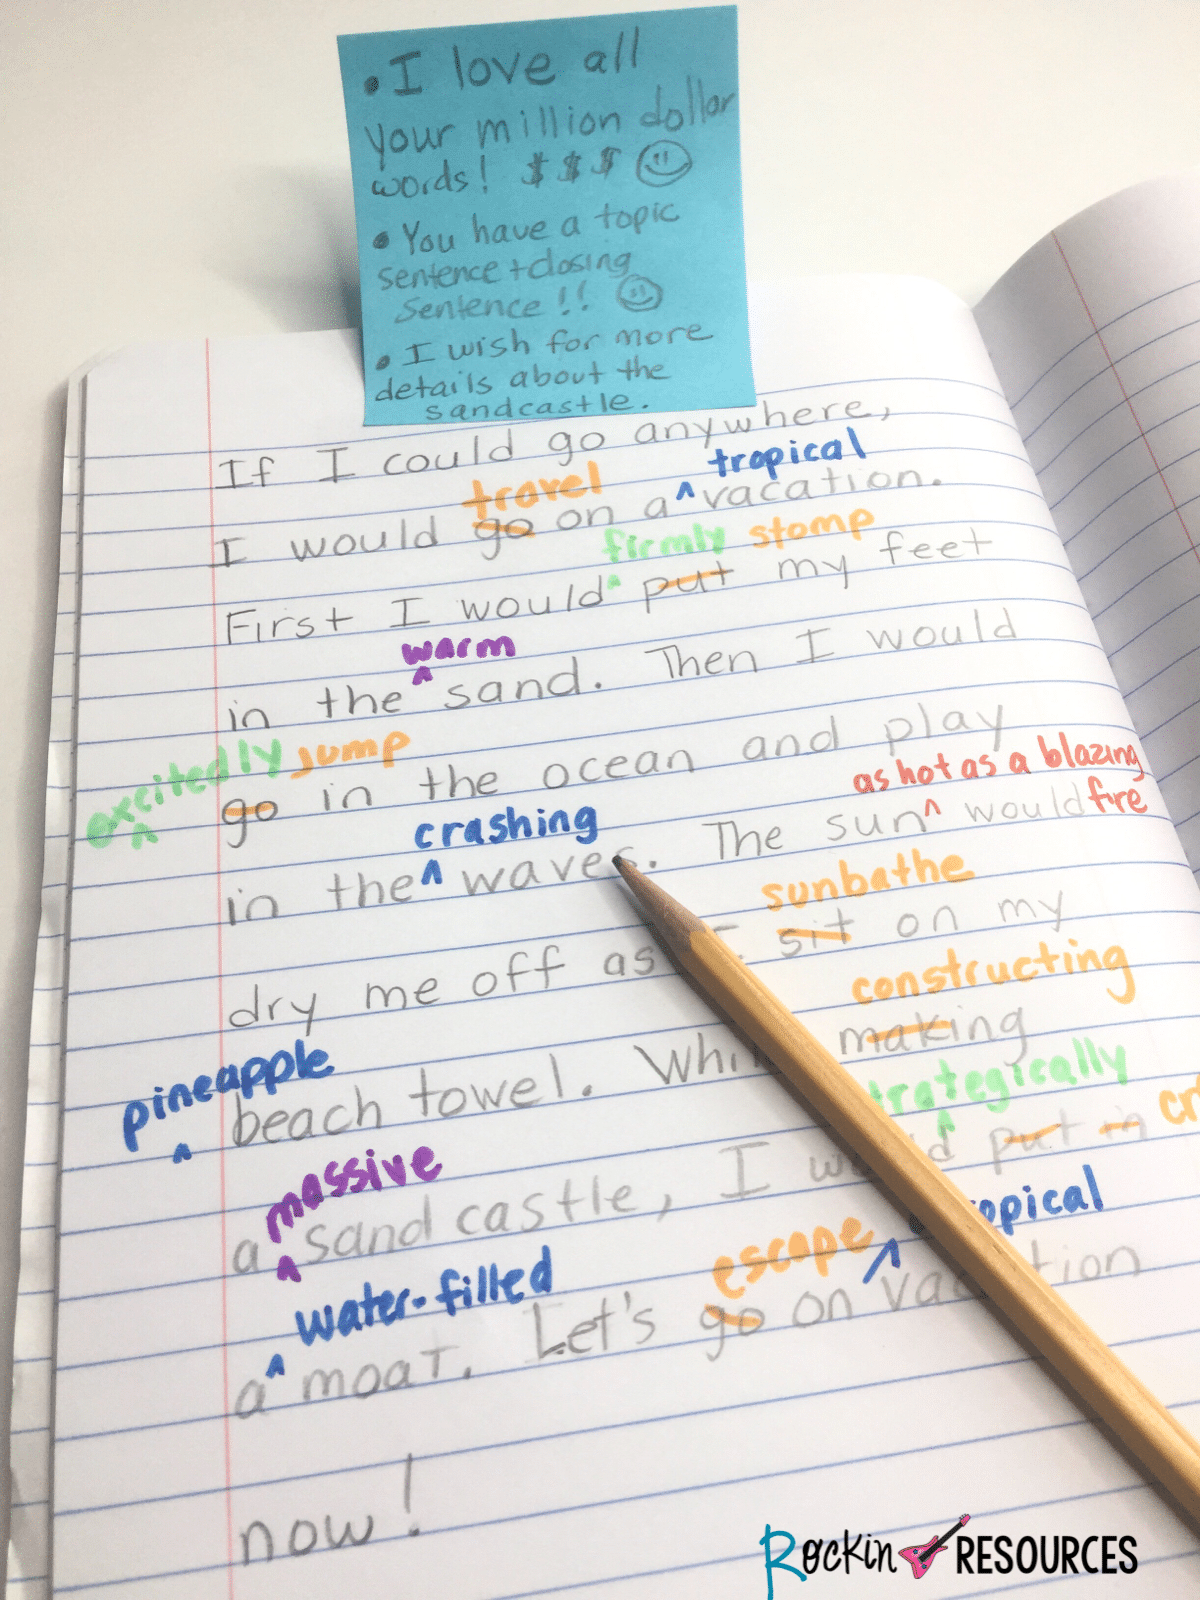 • I love all
your million dollar
words! $ $ $
• You have a topic
sentence + closing
sentence!!
• I wish for more
details about the
sandcastle.
If I could go anywhere,
travel tropical
I would go on a ^ vacation.
firmly stomp
First I would ^ put my feet
warm
in the ^ sand. Then I would
excitedly jump
^ go in the ocean and play
as hot as a blazing
crashing
in the ^ waves. The sun ^ would fire
sunbathe
dry me off as sit on my
constructing
pineapple
^ beach towel. making
massive
a ^ sand castle, I put in
water-filled escape
a ^ moat. Let's go on ^ vacation
now!
Rockin RESOURCES